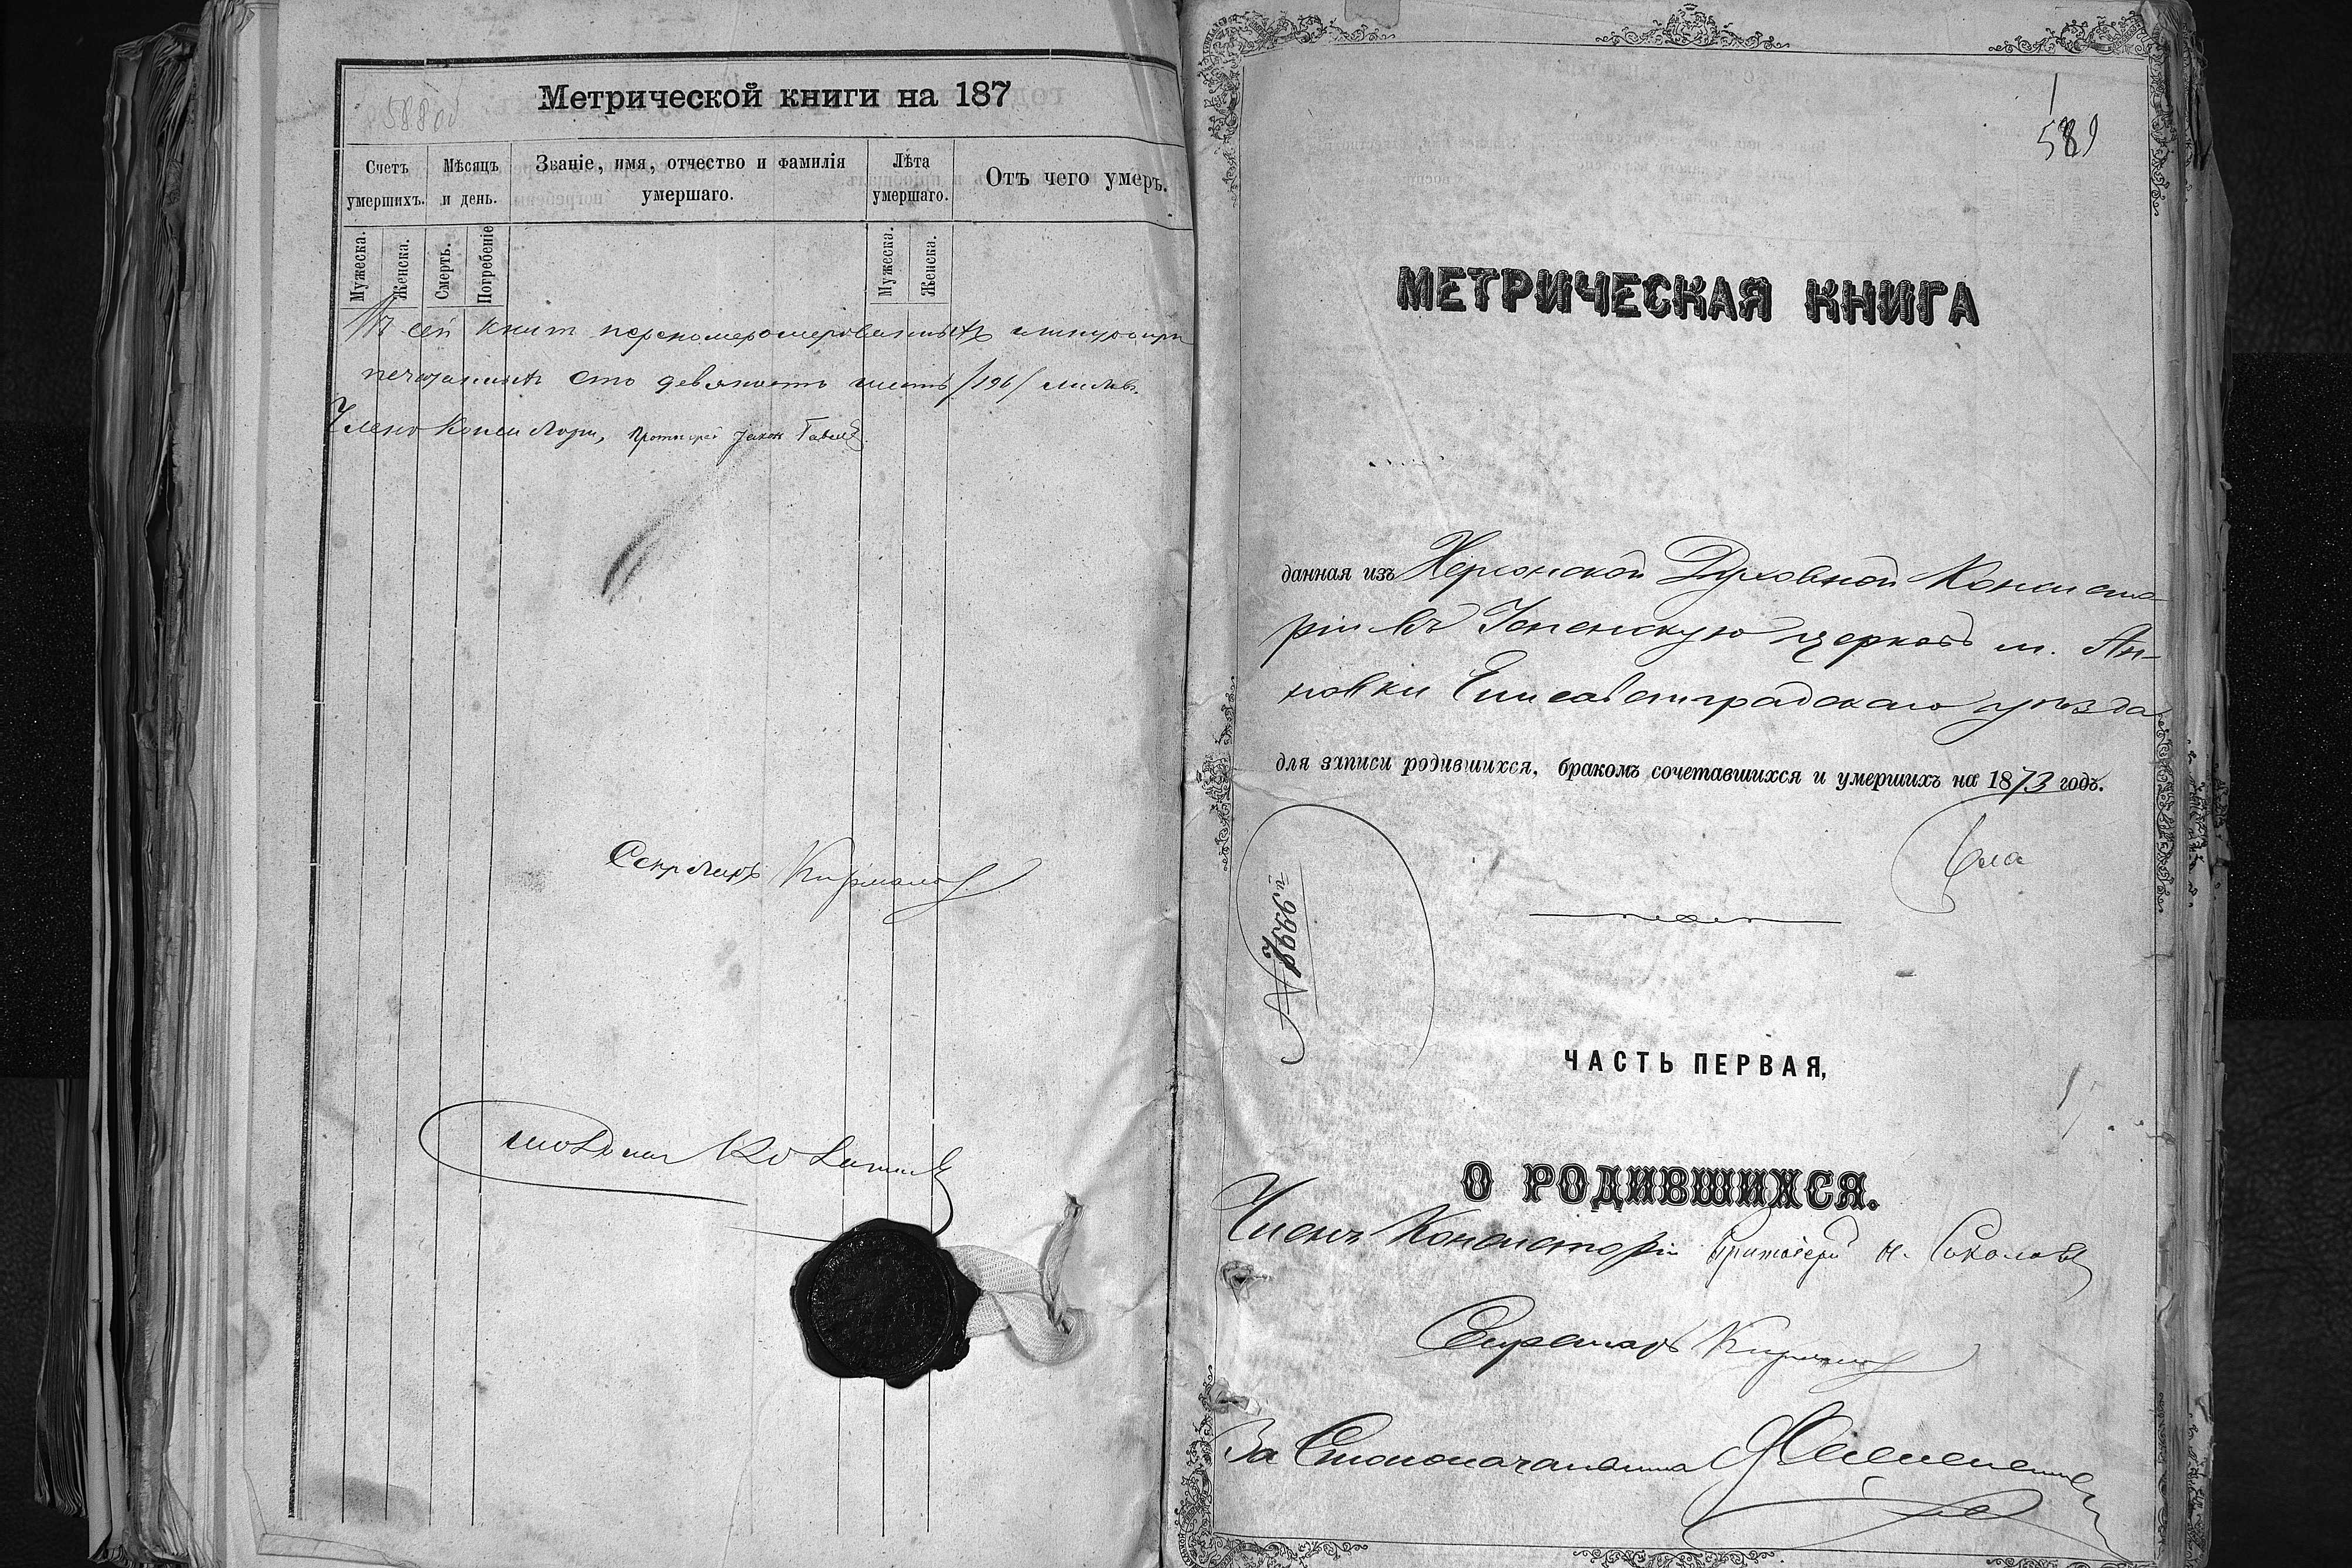 588 об
Метрической книги на 187
Счетъ умершихъ.
Мѣсяцъ и день.
Званіе, имя, отчество и фамилія умершаго.
Лѣта умершаго.
Отъ чего умеръ.
Мужеска.
Женска.
Смерть.
Погребеніе
Мужеска.
Женска.
Въ сей книгѣ
печатанныхъ сто девяносто шесть /196/ листовъ.
Членъ Консисторіи, Протоіерей
Секретарь
1
589
МЕТРИЧЕСКАЯ КНИГА
данная изъ Херсонской Духовной Консисто
ріи въ Успенскую церковь м. Ан-
новки Елисаветградскаго уѣзда
для записи родившихся, бракомъ сочетавшихся и умершихъ на 1873 годъ.
№ 7666й
ЧАСТЬ ПЕРВАЯ,
О РОДИВШИХСЯ.
Членъ Консисторіи Протоіерей Н. Соколовъ
Секретарь
За Столоначальника